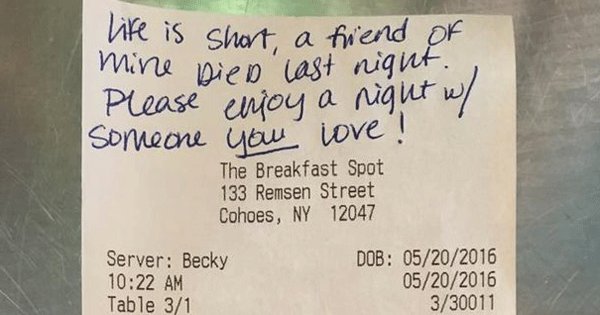 Life is short, a friend of
mine Died last night.
Please enjoy a night w/
someone you love!
The Breakfast Spot
133 Remsen Street
Cohoes, NY 12047
Server: Becky DOB: 05/20/2016
10:22 AM 05/20/2016
Table 3/1 3/30011